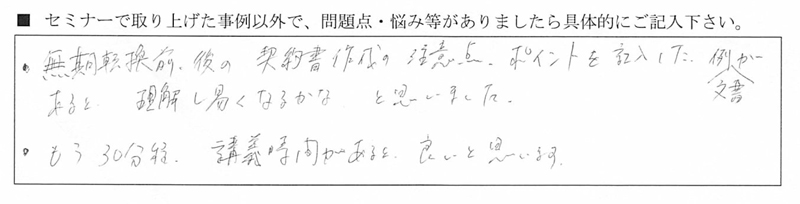 ■ セミナーで取り上げた事例以外で、問題点・悩み等がありましたら具体的にご記入下さい。
・無期転換前、後の 契約書作成の注意点、ポイントを記入した 例文書が
あると 理解し易くなるかな と思いました。
・もう30分程、講義時間があると、良いと思います。